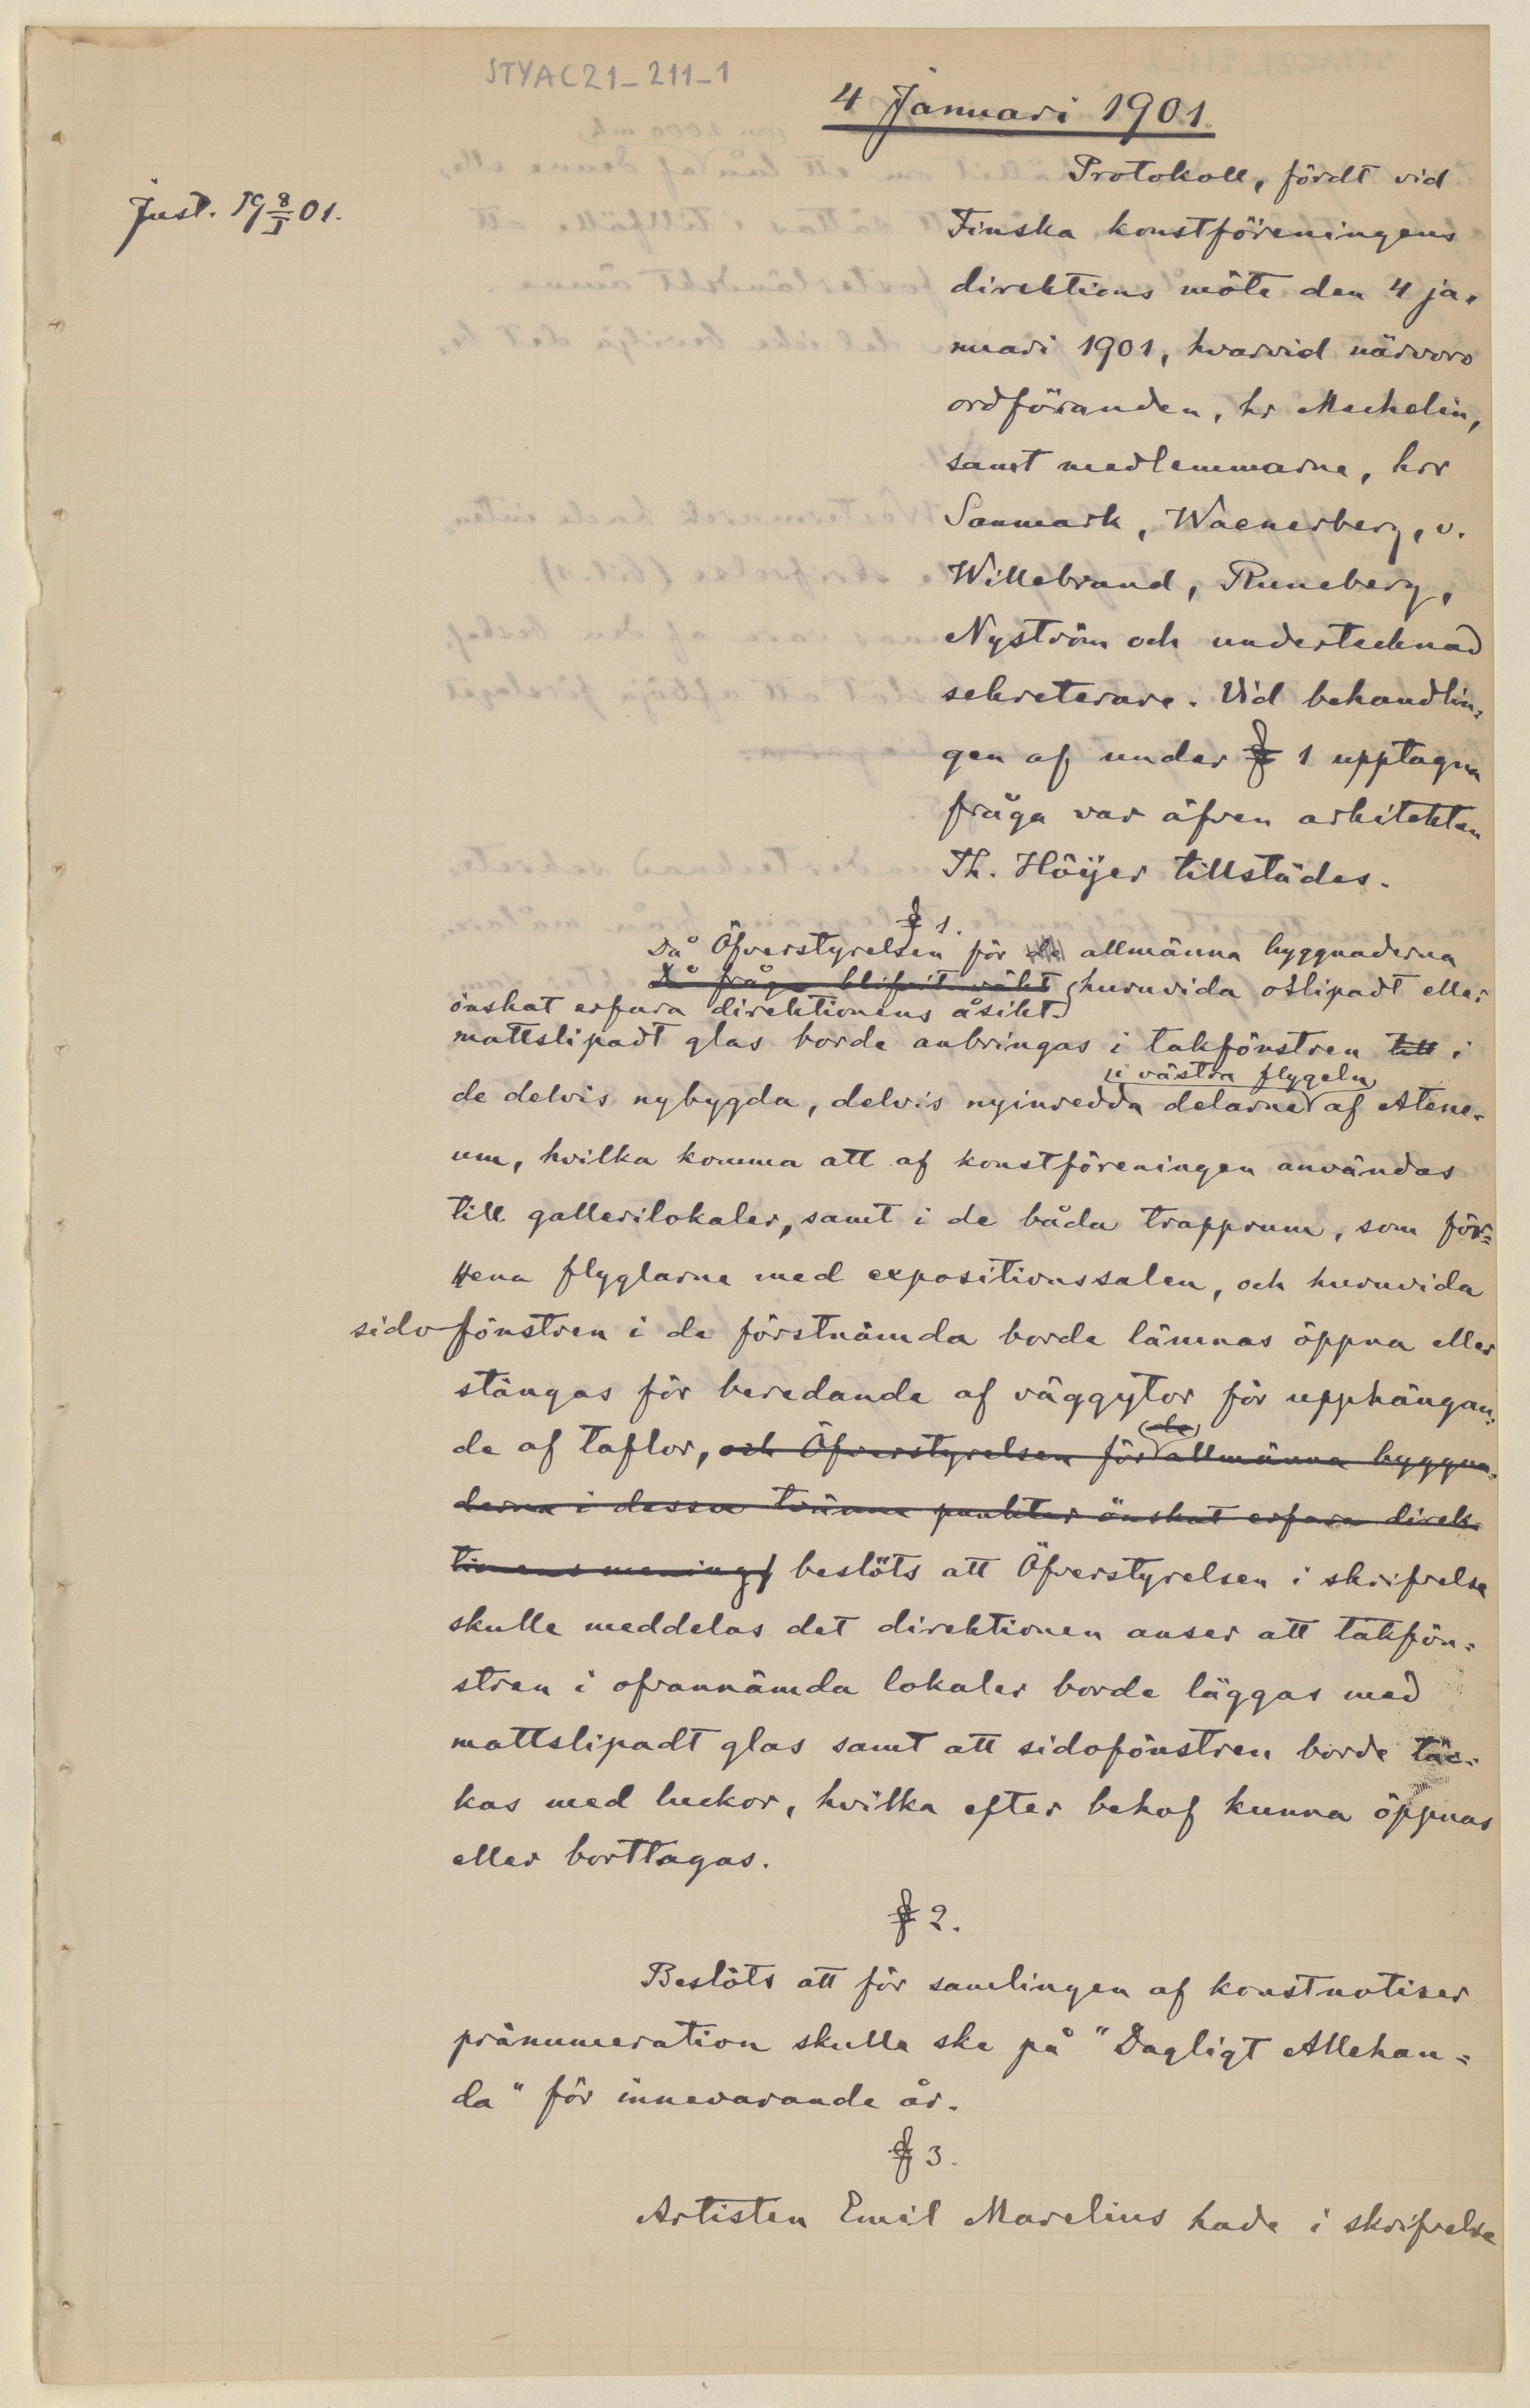 STYAC21_211_1
4 Januari 1901.
Just. 19 8/I 01.
Protokoll, fördt vid
Finska konstföreningens
direktions möte den 4 ja-
nuari 1901, hvarvid närvoro
ordföranden, hr Mechelin,
samt medlemmarne, hrr
Sanmark, Waenerberg, v.
Willebrand, Runeberg,
Nyström och undertecknad
sekreterare. Vid behandlin-
gen af under § 1 upptagna
fråga var äfven arkitekten
Th. Höijer tillstädes.
§ 1.
Då Öfverstyrelsen för de allmänna byggnaderna
Då fråga blifvit väkt huruvida oslipadt eller
önskat erfara direktionens åsikt
mattslipadt glas borde anbringas i takfönstren till i
i västra flygeln
de delvis nybygda, delvis nyinredda delarne af Atene-
um, hvilka komma att af konstföreningen användas
till gallerilokaler, samt i de båda trapprum, som för-
ena flyglarne med expositionssalen, och huruvida
sidofönstren i de förstnämda borde lämnas öppna eller
stängas för beredande af väggytor för upphängan-
de
de af taflor, och Öfverstyrelsen för allmänna byggna-
derna i dessa tvänne punkter önskat erfara direk-
tionens mening, beslöts att Öfverstyrelsen i skrifvelse
skulle meddelas det direktionen anser att takfön-
stren i ofvannämda lokaler borde läggas med
mattslipadt glas samt att sidofönstren borde täc-
kas med luckor, hvilka efter behof kunna öppnas
eller borttagas.
§ 2.
Beslöts att för samlingen af konstnotiser
pränumeration skulle ske på "Dagligt Allehan-
da" för innevarande år.
§ 3.
Artisten Emil Marelius hade i skrifvelse